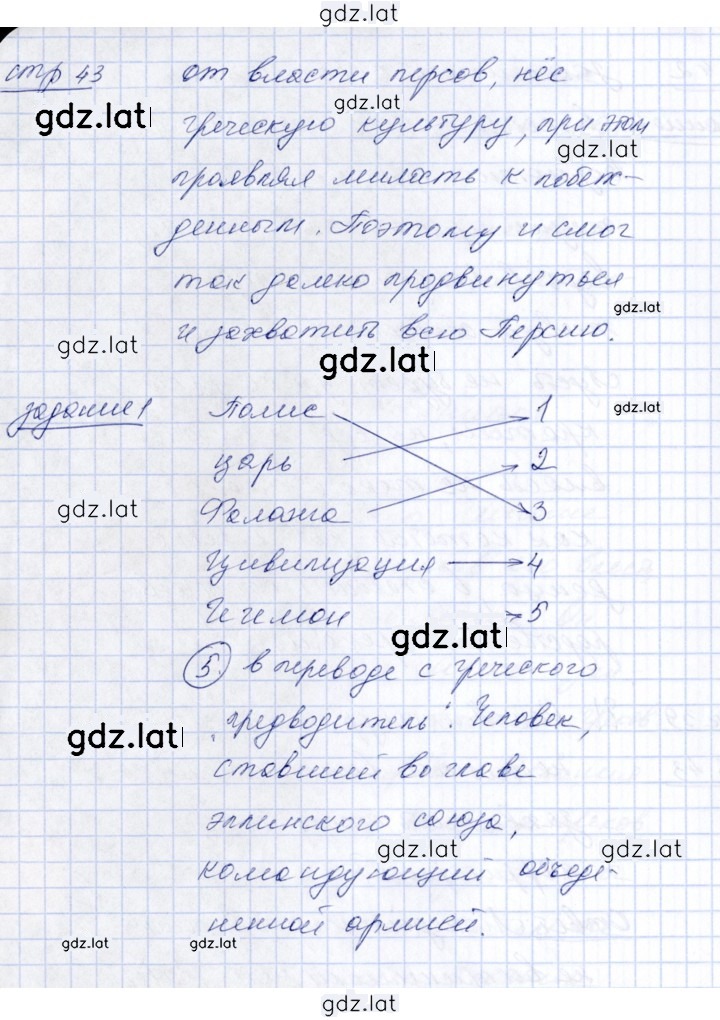 gdz.lat
стр 43
от власти персов, нёс
gdz.lat
gdz.lat
греческую культуру, при этом
gdz.lat
проявляя милость к побеж-
денным. Поэтому и смог
так далеко продвинуться
gdz.lat
и захватить всю Персию.
gdz.lat
gdz.lat
задание 1
Полис 1
gdz.lat
царь 2
gdz.lat
Фаланга 3
Цивилизация 4
Гегемон 5
gdz.lat
5. в переводе с греческого
gdz.lat
"предводитель". Человек,
ставший во главе
эллинского союза,
gdz.lat
gdz.lat
командующий объеде-
ненной армией.
gdz.lat
gdz.lat
gdz.lat